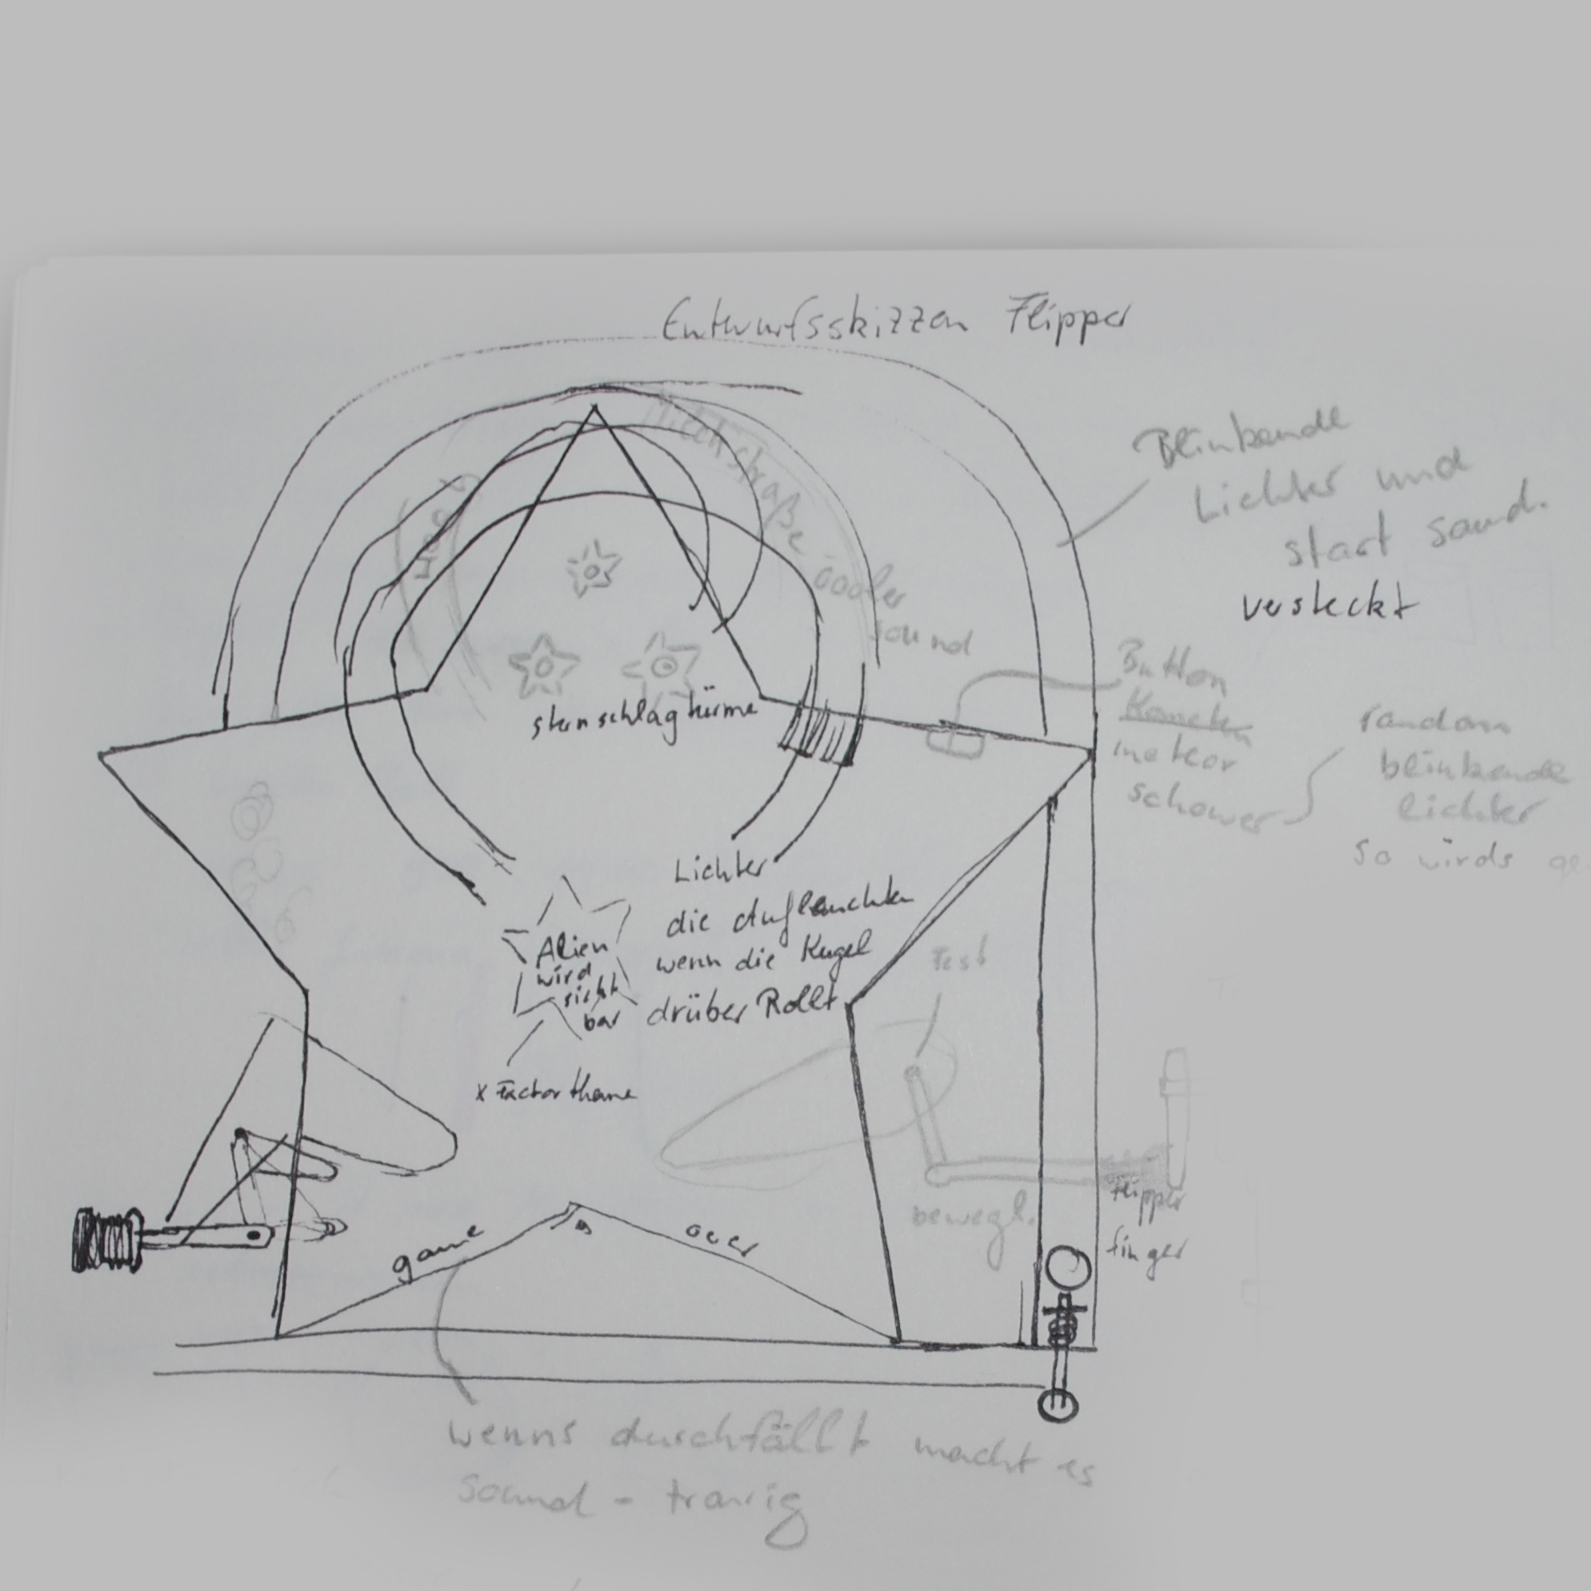 Entwurfsskizzen Flipper
Blinkende
Lichter und
start sound.
versteckt
Milchstraße cooler
sound
Button
Kometen
meteor
schower
random
blinkende
lichter
so wirds
sternschlagtürme
Lichter
die aufleuchten
wenn die Kugel
drüber Rollt
Alien
wird
sicht
bar
x Factor theme
Fest
bewegl.
Flipper
finger
game over
wenns durchfällt macht es
sound - traurig